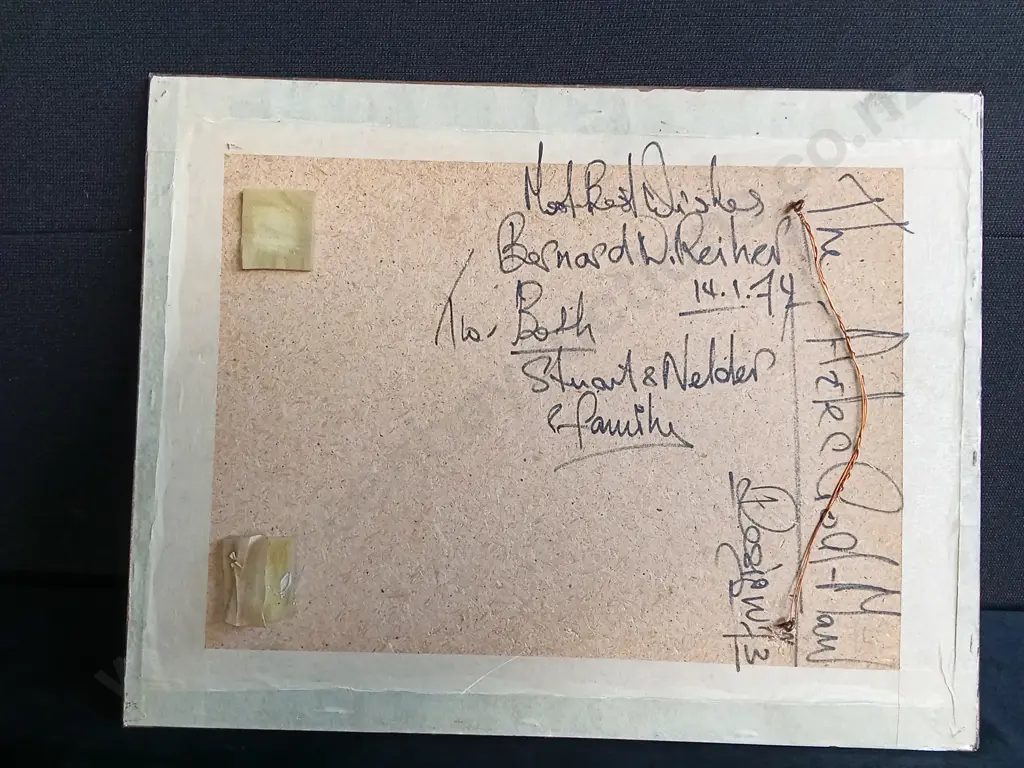 Most Best Wishes
Bernard W. Reiher
14.1.74
To. Both
Stuart & Nelder
& family
The
Man
73